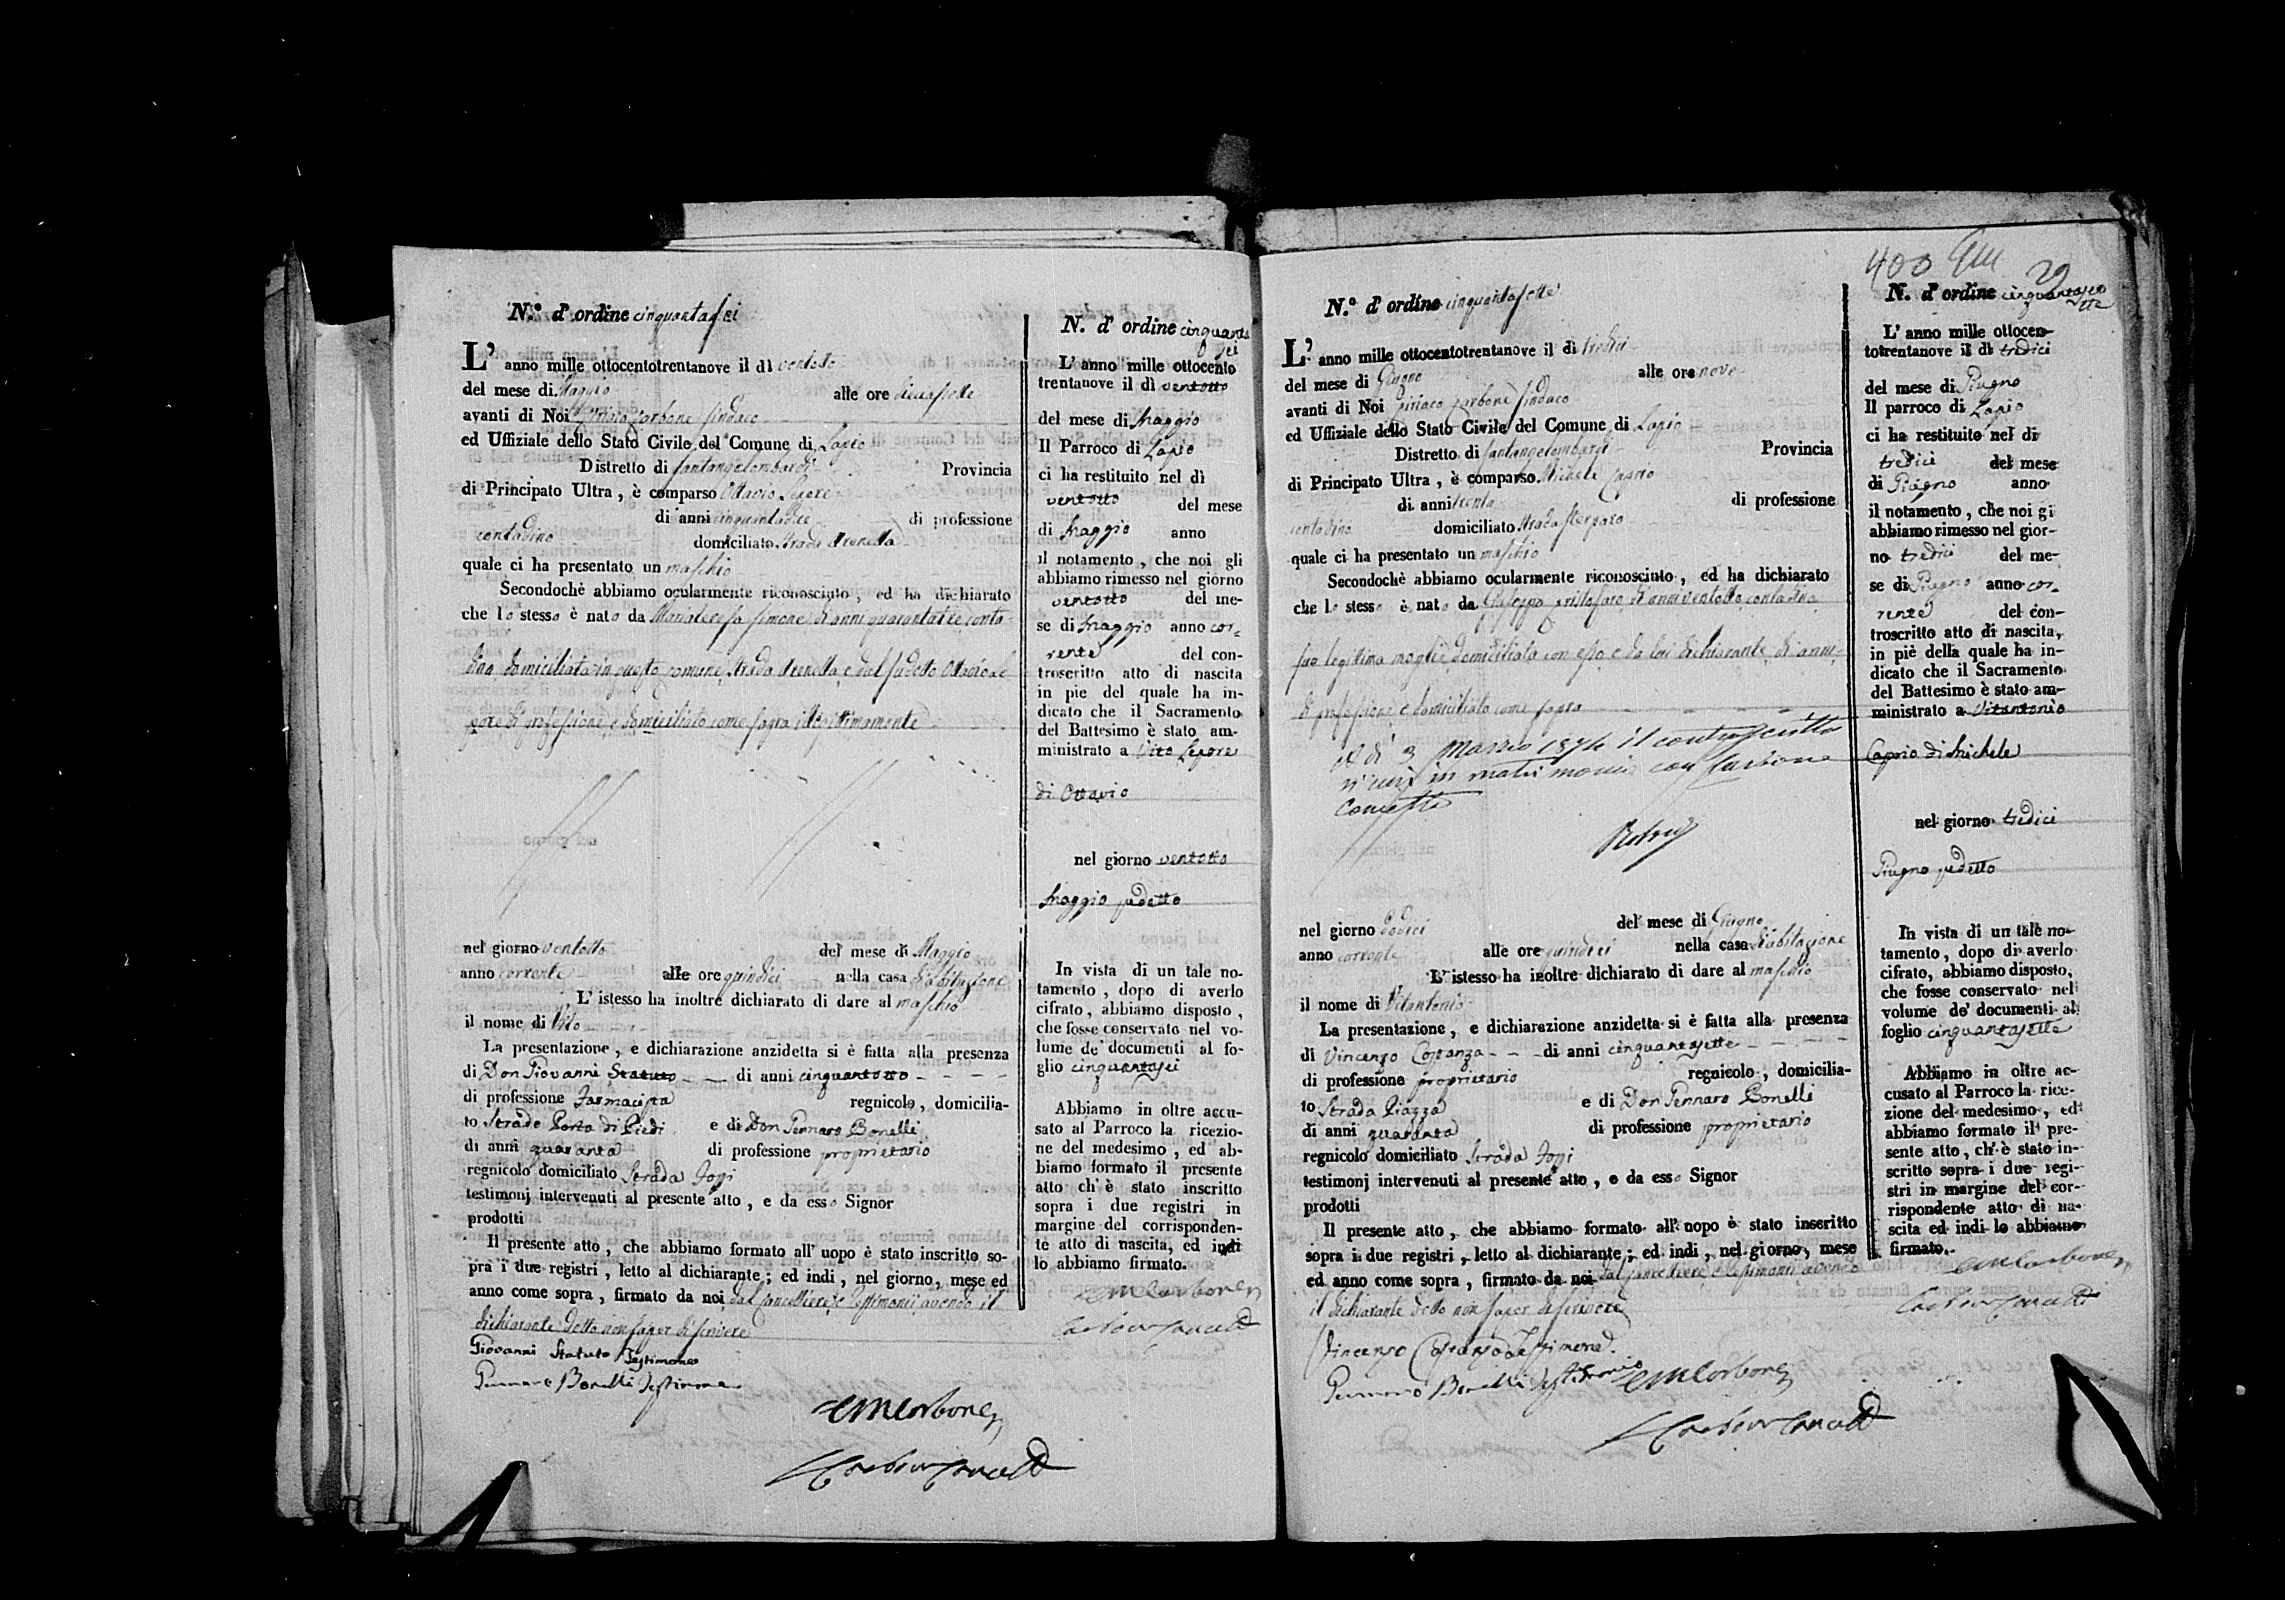 N.° d'ordine cinquantasei
L'anno mille ottocentotrentanove il dì ventotto
del mese di Maggio alle ore diciassette
avanti di Noi Carbone Sindaco
ed Uffiziale dello Stato Civile del Comune di Lapio
Distretto di Santangelombardi Provincia
di Principato Ultra, è comparso Ottavio Lepore
di anni cinquantadice di professione
contadino domiciliato strada
quale ci ha presentato un maschio
Secondochè abbiamo ocularmente riconosciuto, ed ha dichiarato
che lo stesso è nato da Mariateresa Simone di anni quarantatre conta-
dina domiciliata in questo comune strada e dal sudetto Ottavio Le-
pore di professione, e domiciliato come sopra illegittimamente
nel giorno ventotto del mese di Maggio
anno corrente alle ore quindici nella casa d'abitazione
L'istesso ha inoltre dichiarato di dare al maschio
il nome di Vito
La presentazione, e dichiarazione anzidetta si è fatta alla presenza
di Don Giovanni Statuto di anni cinquantotto
di professione Farmacista regnicolo, domicilia-
to Strada Porta di Piedi e di Don Gennaro Bonelli
di anni quaranta di professione proprietario
regnicolo domiciliato Strada Fossi
testimonj intervenuti al presente atto, e da esso Signor
prodotti
Il presente atto, che abbiamo formato all' uopo è stato inscritto so-
pra i due registri, letto al dichiarante; ed indi, nel giorno, mese ed
anno come sopra, firmato da noi dal Cancelliere, e Testimonii avendo il
dichiarante detto non saper di scrivere
Giovanni Statuto Testimone
Gennaro Bonelli Testimone
Carbone
N. d'ordine cinquanta
sei
L'anno mille ottocento
trentanove il dì ventotto
del mese di Maggio
Il Parroco di Lapio
ci ha restituito nel dì
ventotto del mese
di Maggio anno
il notamento, che noi gli
abbiamo rimesso nel giorno
ventotto del me-
se di Maggio anno cor-
rente del con-
troscritto atto di nascita
in pie del quale ha in-
dicato che il Sacramento
del Battesimo è stato am-
ministrato a Vito Lepore
di Ottavio
nel giorno ventotto
Maggio sudetto
In vista di un tale no-
tamento, dopo di averlo
cifrato, abbiamo disposto,
che fosse conservato nel vo-
lume de' documenti al fo-
glio cinquantasei
Abbiamo in oltre accu-
sato al Parroco la ricezio-
ne del medesimo, ed ab-
biamo formato il presente
atto ch'è stato inscritto
sopra i due registri in
margine del corrisponden-
te atto di nascita, ed indi
lo abbiamo firmato.
Carbone
N.° d'ordine cinquantasette
L'anno mille ottocentotrentanove il dì tredici
del mese di Giugno alle ore nove
avanti di Noi Ciriaco Carbone Sindaco
ed Uffiziale dello Stato Civile del Comune di Lapio
Distretto di Santangelombardi Provincia
di Principato Ultra, è comparso Michele Caprio
di anni trenta di professione
contadino domiciliato strada
quale ci ha presentato un maschio
Secondochè abbiamo ocularmente riconosciuto, ed ha dichiarato
che lo stesso è nato da Giuseppa Cristofaro di anni ventotto contadina
sua legittima moglie domiciliata con esso, e da lui dichiarante, di anni,
di professione, e domiciliato come sopra
A dì 3 Marzo 1874 il controscritto
si unì in matrimonio con Carbone
Concetta
nel giorno dodici del mese di Giugno
anno corrente alle ore quindici nella casa d'abitazione
L'istesso ha inoltre dichiarato di dare al maschio
il nome di Vitantonio
La presentazione, e dichiarazione anzidetta si è fatta alla presenza
di Vincenzo Costanza di anni cinquantasette
di professione proprietario regnicolo, domicilia-
to Strada Piazza e di Don Gennaro Bonelli
di anni quaranta di professione proprietario
regnicolo domiciliato Strada Fossi
testimonj intervenuti al presente atto, e da esso Signor
prodotti
Il presente atto, che abbiamo formato all' uopo è stato inscritto
sopra i due registri, letto al dichiarante; ed indi, nel giorno, mese
ed anno come sopra, firmato da noi dal Cancelliere, e Testimonii avendo
il dichiarante detto non saper di scrivere
Vincenzo Costanza Testimone
Gennaro Bonelli Testimonio
Carbone
400 29
N. d'ordine cinquantase
tte
L'anno mille ottocen-
totrentanove il dì tredici
del mese di Giugno
Il parroco di Lapio
ci ha restituito nel dì
tredici del mese
di Giugno anno
il notamento, che noi gi
abbiamo rimesso nel gior-
no tredici del me-
se di Giugno anno cor-
rente del con-
troscritto atto di nascita,
in piè della quale ha in-
dicato che il Sacramento
del Battesimo è stato am-
ministrato a Vitantonio
Caprio di Michele
nel giorno tredici
Giugno sudetto
In vista di un tale no-
tamento, dopo di averlo
cifrato, abbiamo disposto,
che fosse conservato nel
volume de' documenti al
foglio cinquantasette
Abbiamo in oltre ac-
cusato al Parroco la rice-
zione del medesimo, ed
abbiamo formato il pre-
sente atto, ch'è stato in-
scritto sopra i due regi-
stri in margine del cor-
rispondente atto di na-
scita ed indi lo abbiamo
firmato.
Carbone